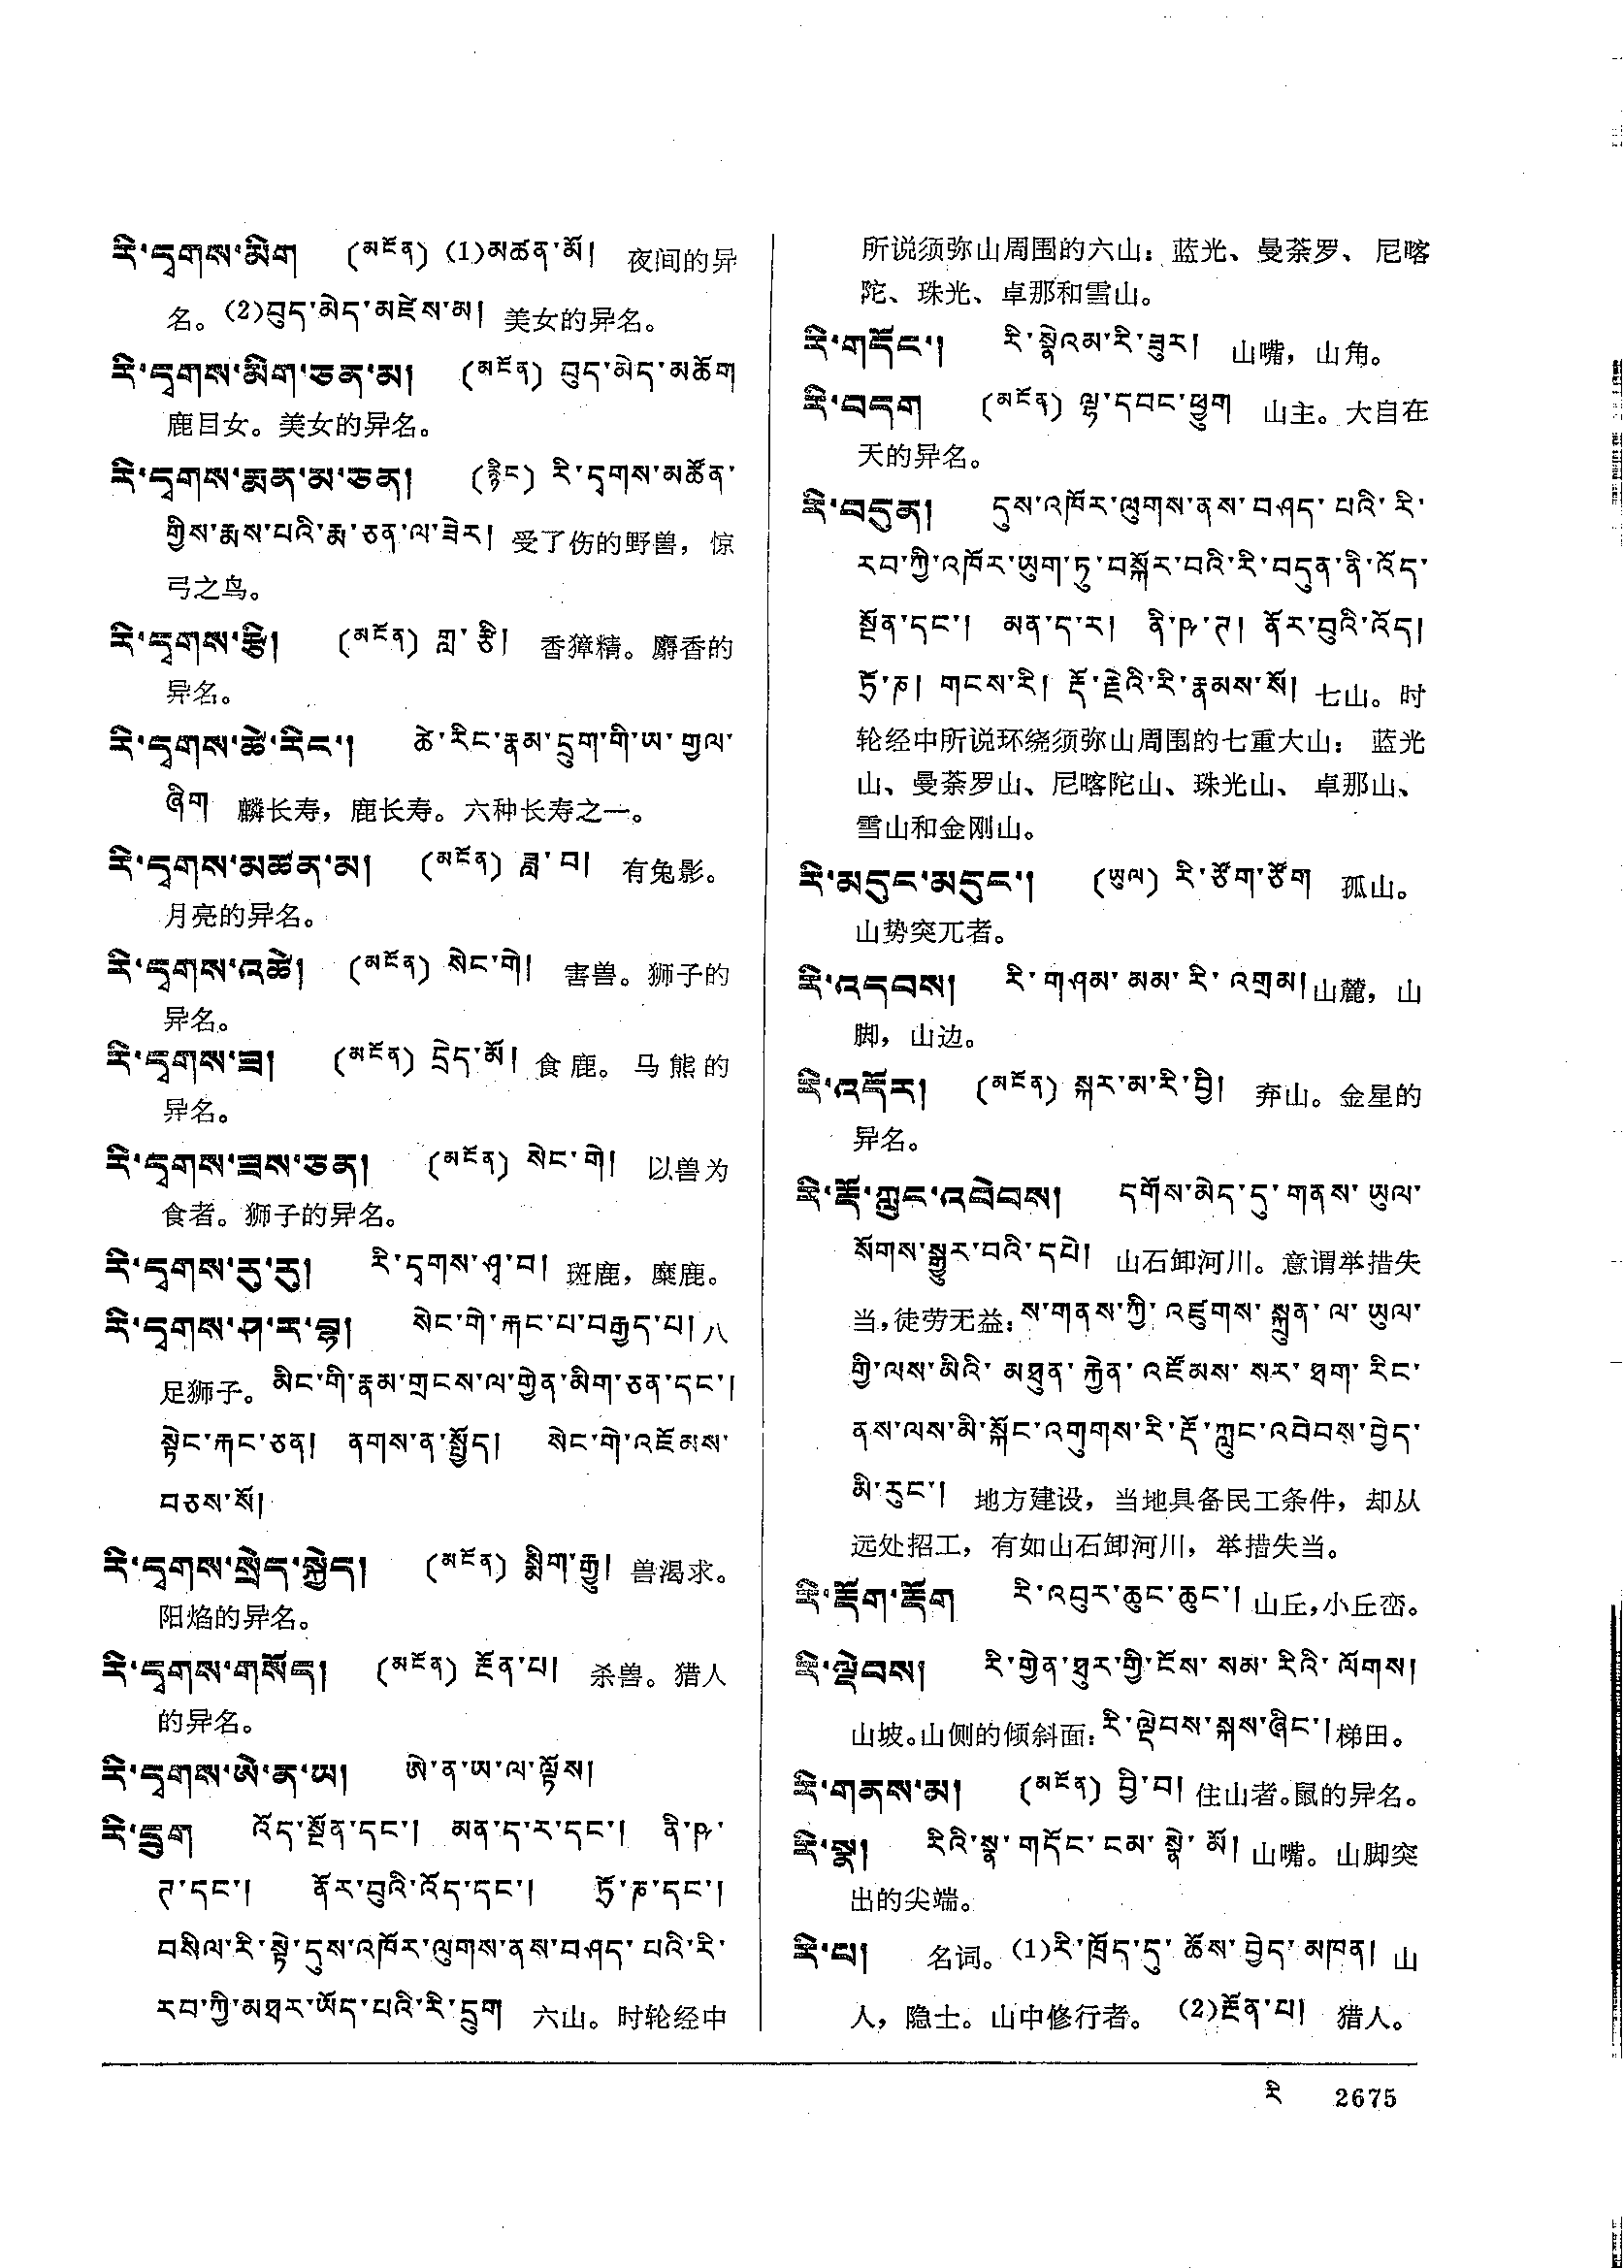 རི་དྭགས་མིག (མངོན) (1)མཚན་མོ། 夜间的异
名。(2)བུད་མེད་མཛེས་མ། 美女的异名。
རི་དྭགས་མིག་ཅན་མ། (མངོན) བུད་མེད་མཆོག
鹿目女。美女的异名。
རི་དྭགས་རྨན་མ་ཅན། (རྙིང) རི་དྭགས་མཚོན་
གྱིས་རྨས་པའི་རྨ་ཅན་ལ་ཟེར། 受了伤的野兽，惊
弓之鸟。
རི་དྭགས་རྩི། (མངོན) གླ་རྩི། 香獐精。麝香的
异名。
རི་དྭགས་ཚེ་རིང་། ཚེ་རིང་རྣམ་དྲུག་གི་ཡ་གྱལ་
ཞིག 麟长寿，鹿长寿。六种长寿之一。
རི་དྭགས་མཚན་མ། (མངོན) ཟླ་བ། 有兔影。
月亮的异名。
རི་དྭགས་འཚེ། (མངོན) སེང་གེ། 害兽。狮子的
异名。
རི་དྭགས་ཟ། (མངོན) དྲེད་མོ། 食鹿。马熊的
异名。
རི་དྭགས་ཟས་ཅན། (མངོན) སེང་གེ། 以兽为
食者。狮子的异名。
རི་དྭགས་རུ་རུ། རི་དྭགས་ཤྭ་བ། 斑鹿，麋鹿。
རི་དྭགས་ཤ་ར་བྷ། སེང་གེ་རྐང་པ་བརྒྱད་པ། 八
足狮子。མིང་གི་རྣམ་གྲངས་ལ་གྱེན་མིག་ཅན་དང་།
སྟེང་རྐང་ཅན། ནགས་ན་སྤྱོད། སེང་གེ་འཇོམས་
བཅས་སོ།
རི་དྭགས་སྲེད་སྐྱེད། (མངོན) སྨིག་རྒྱུ། 兽渴求。
阳焰的异名。
རི་དྭགས་གསོད། (མངོན) རྔོན་པ། 杀兽。猎人
的异名。
རི་དྭགས་ཨེ་ན་ཡ། ཨེ་ན་ཡ་ལ་ལྟོས།
རི་དྲུག འོད་སྔོན་དང་། མན་ད་ར་དང་། ནི་ཥ་
ཊ་དང་། ནོར་བུའི་འོད་དང་། ཏྲོ་ཎ་དང་།
བསིལ་རི་སྟེ་དུས་འཁོར་ལུགས་ནས་བཤད་པའི་རི་
རབ་ཀྱི་མཐར་ཡོད་པའི་རི་དྲུག 六山。时轮经中
所说须弥山周围的六山：蓝光、曼荼罗、尼喀
陀、珠光、卓那和雪山。
རི་གདོང་། རི་སྣེའམ་རི་ཟུར། 山嘴，山角。
རི་བདག (མངོན) ལྷ་དབང་ཕྱུག 山主。大自在
天的异名。
རི་བདུན། དུས་འཁོར་ལུགས་ནས་བཤད་པའི་རི་
རབ་ཀྱི་འཁོར་ཡུག་ཏུ་བསྐོར་བའི་རི་བདུན་ནི་འོད་
སྔོན་དང་། མན་ད་ར། ནི་ཥ་ཊ། ནོར་བུའི་འོད།
ཏྲོ་ཎ། གངས་རི། རྡོ་རྗེའི་རི་རྣམས་སོ། 七山。时
轮经中所说环绕须弥山周围的七重大山：蓝光
山、曼荼罗山、尼喀陀山、珠光山、卓那山、
雪山和金刚山。
རི་མདུང་མདུང་། (ཡུལ) རི་ཙོག་ཙོག 孤山。
山势突兀者。
རི་འདབས། རི་གཤམ་མམ་རི་འགྲམ། 山麓，山
脚，山边。
རི་འདོར། (མངོན) སྐར་མ་རི་བྱི། 弃山。金星的
异名。
རི་རྡོ་ཀླུང་འབེབས། དགོས་མེད་དུ་གནས་ཡུལ་
སོགས་སྒྱུར་བའི་དཔེ། 山石卸河川。意谓举措失
当,徒劳无益：ས་གནས་ཀྱི་འཛུགས་སྐྲུན་ལ་ཡུལ་
གྱི་ལས་མིའི་མཐུན་རྐྱེན་འཛོམས་སར་ཐག་རིང་
ནས་ལས་མི་སྐོང་འགུགས་རི་རྡོ་ཀླུང་འབེབས་བྱེད་
མི་རུང་། 地方建设，当地具备民工条件，却从
远处招工，有如山石卸河川，举措失当。
རི་རྡོག་རྡོག རི་འབུར་ཆུང་ཆུང་། 山丘,小丘峦。
རི་ལྡེབས། རི་གྱེན་ཐུར་གྱི་ངོས་སམ་རིའི་ལོགས།
山坡。山侧的倾斜面：རི་ལྡེབས་སྐས་ཞིང་། 梯田。
རི་གནས་མ། (མངོན) བྱི་བ། 住山者。鼠的异名。
རི་སྣ། རིའི་སྣ་གདོང་ངམ་སྣེ་མོ། 山嘴。山脚突
出的尖端。
རི་པ། 名词。(1)རི་ཁྲོད་དུ་ཆོས་བྱེད་མཁན། 山
人，隐士。山中修行者。(2)རྔོན་པ། 猎人。
རི 2675